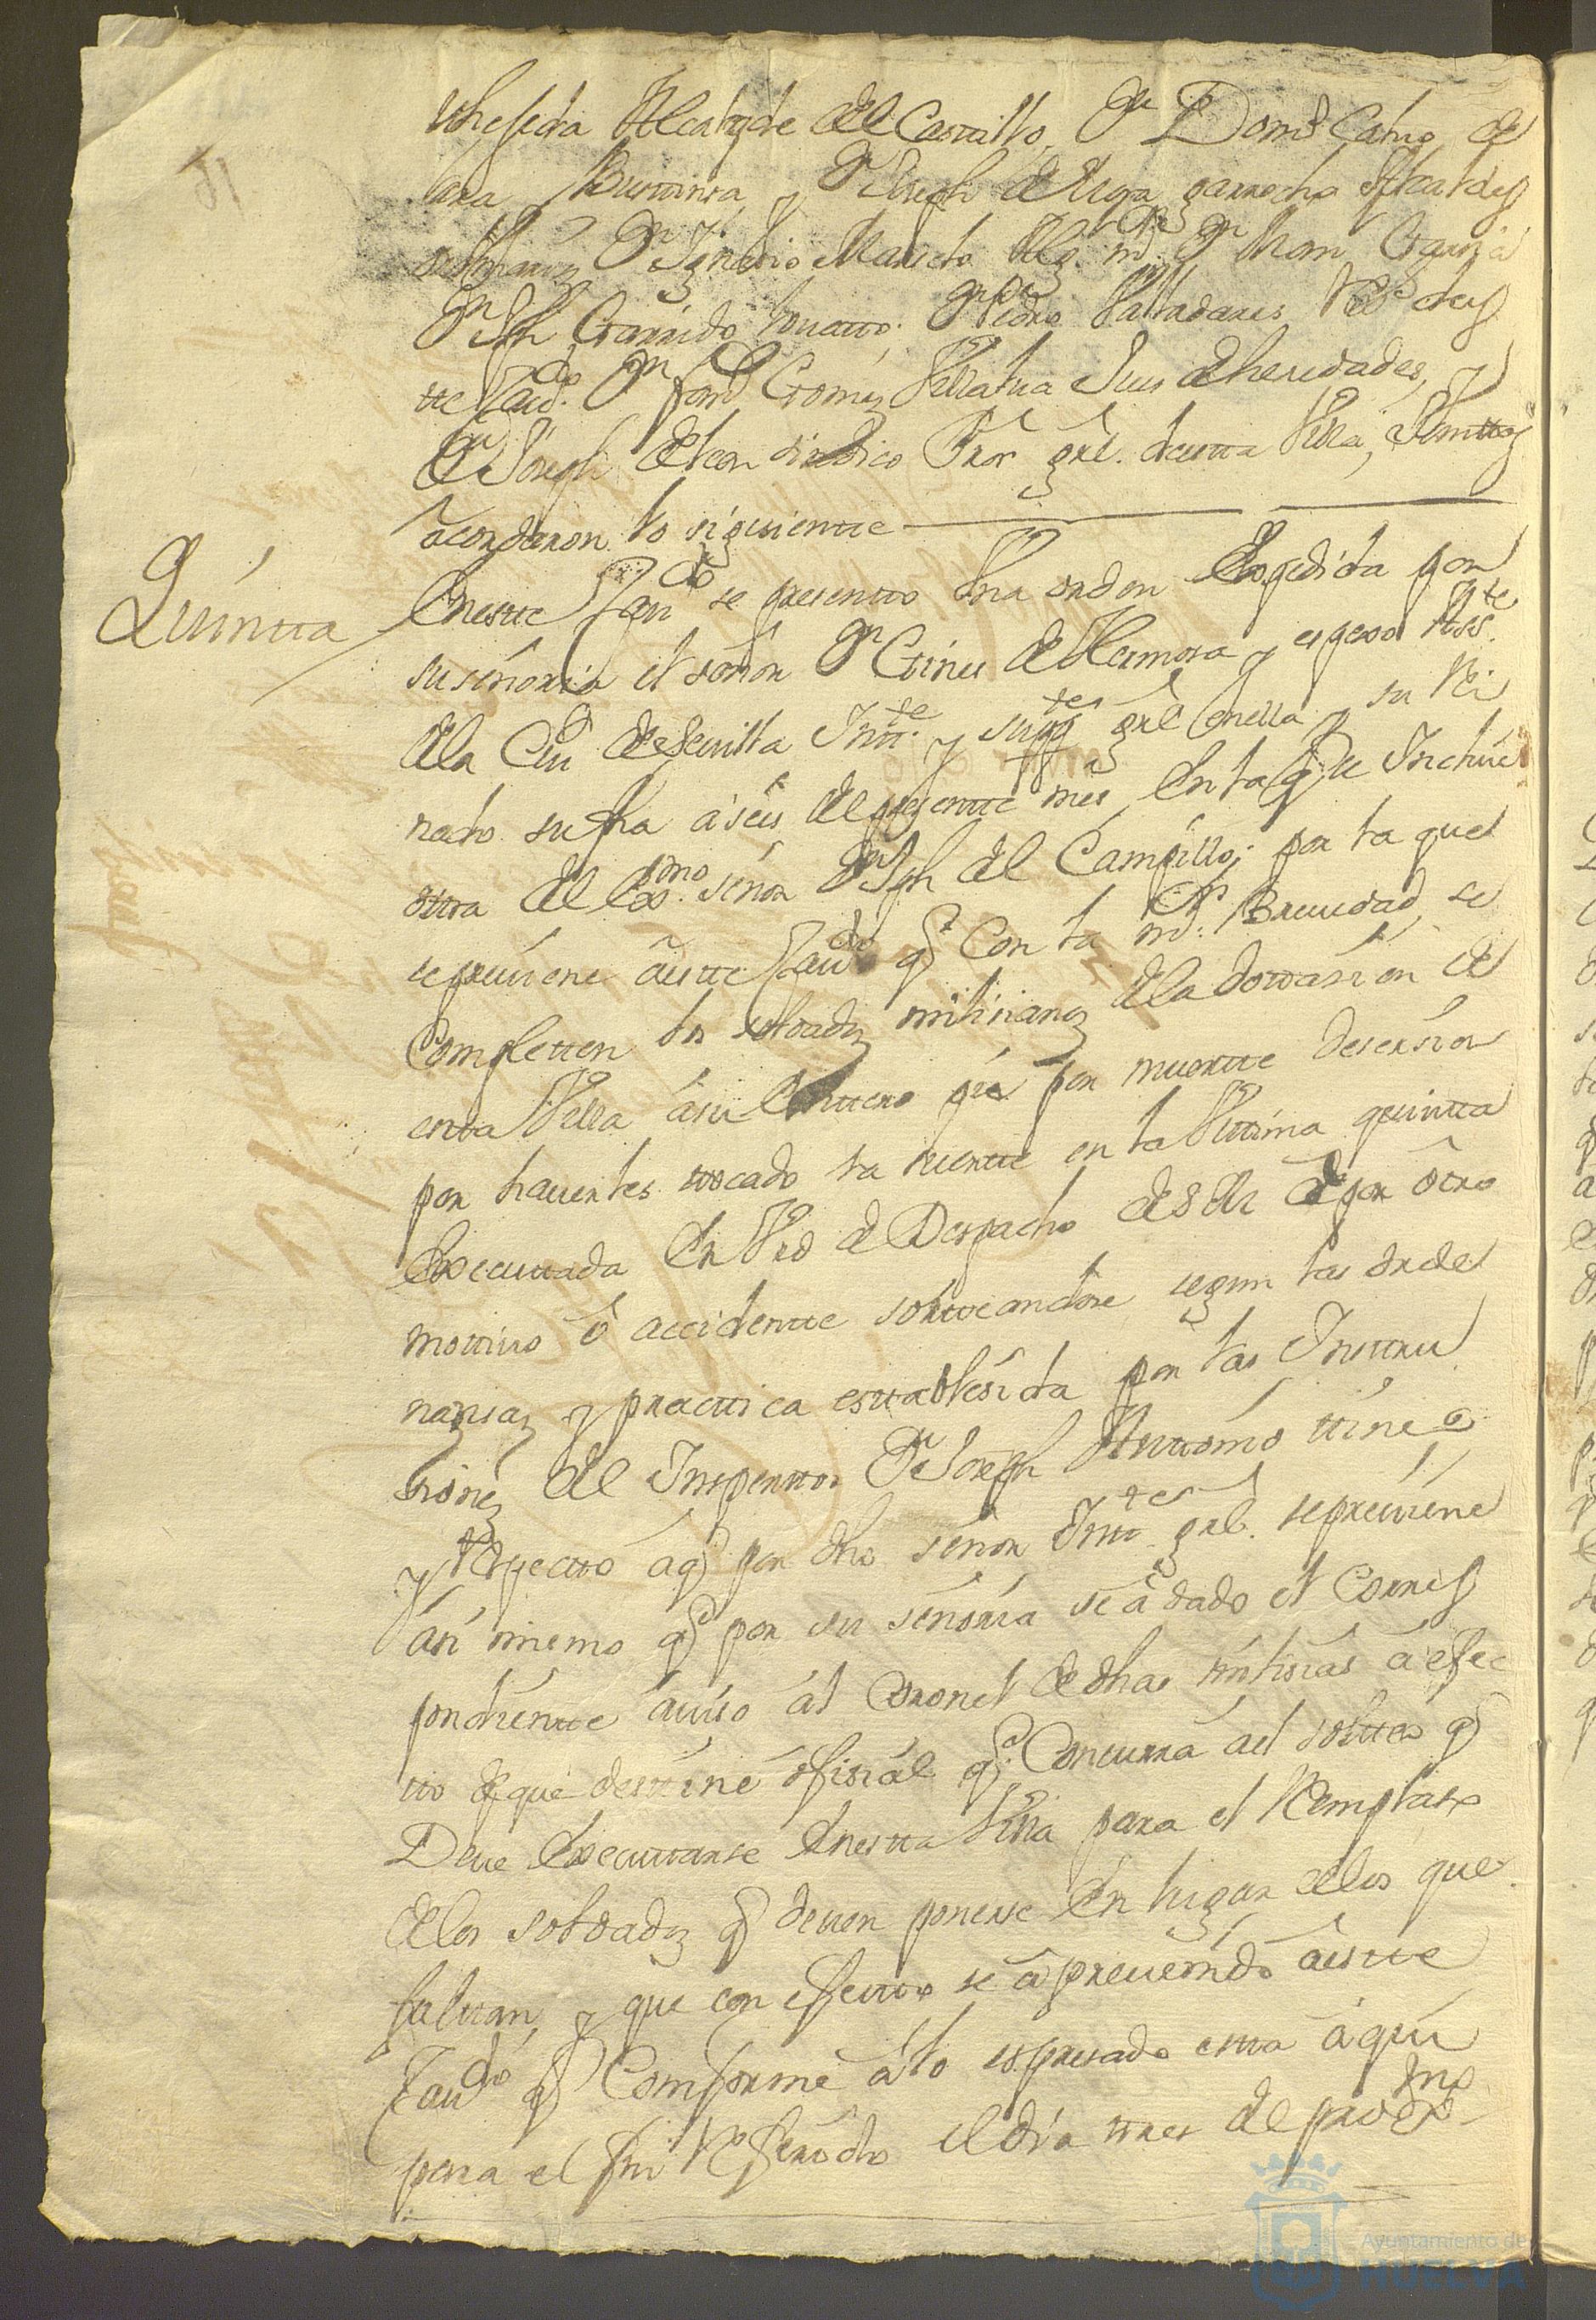 Alcayde del Castillo, Dn Domo Calvo de
ara Bustinsa y Dn Joseph de Vega garrocha Alcaldes
Dn Ignasio Alg. mor Dn
Dn Jph Garrido Dn Pedro Valladares Rexres
este Caudo. Dn Gomez Jues de heredades, y
Dn Joseph de leon sindico Pror gral. desta Villa, Juntos
acordaron lo siguiente
Quintta
Eneste Cavdo se presentto Una orden Expedida por
su señoria el señor Dn Gines de Hermosa y espexo Asste
dela Ciud de Sevilla Inttte. y supte gral enella y su Rei
nado su fha a seis del presente mes, En la que Incluie
otra del Exmo. señor Dn Jph del Campillo; por la que
se previene a este Cavdo q Con la mor. Brevedad se
Completten los soldados milisianos dela dottasion de
esta Villa a su Enttero que por muerte desersion
por haverles tocado la suerte en la Ulttima quintta
Executtada En Vrd de Despacho de S M o por otro
mottivo o accidente sortteandose segun las orde
nansas y practtica establesida por las Instru
siones del Inspector Dn Joseph Anttonio ttineo
y Respectto a q por dho señor Inttte gral. se previene
asi mismo q por su señoria se a dado el Corres
pondiente aviso al Coronel de dhas milisias a efec
tto de que desttine ofisial q Concurra al sortteo q
Deve Executtarse En esta Villa para el Remplaso
delos soldados q deven ponerse En lugar delos que
falttan, y que con efectto se a prevenido a este
Cavdo q Comforme a lo espresado esta aqui
para el fin Referido el dia tres del proxmo
Ayuntamiento de
HUELVA